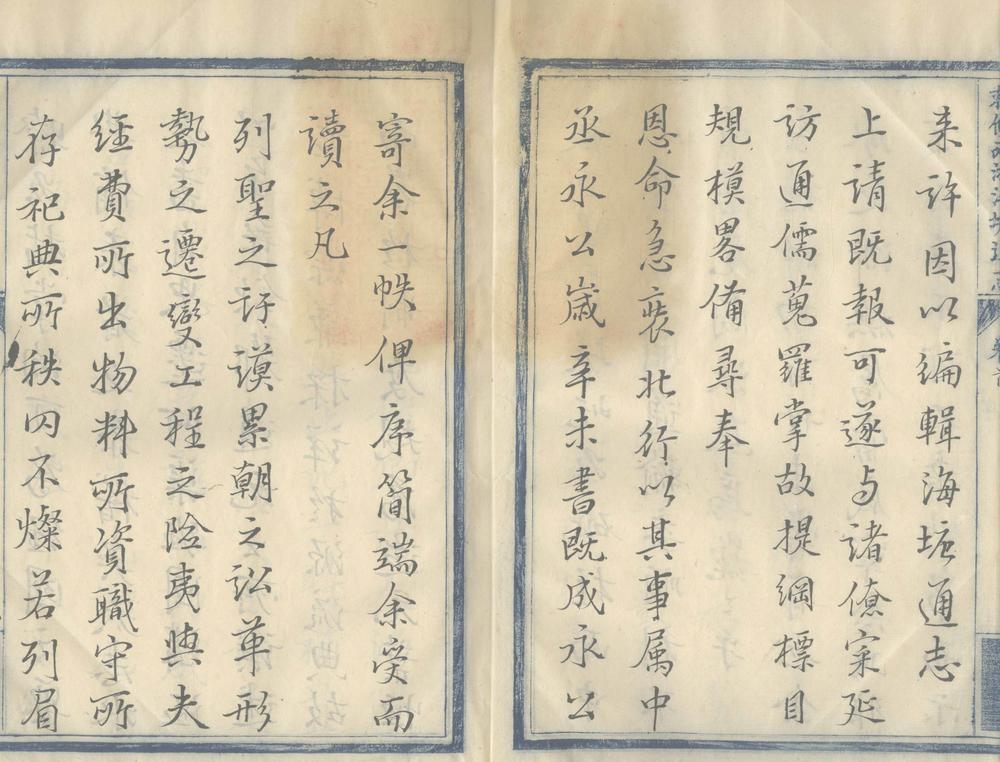 来許因以編輯海塘通志
上請既報可遂与諸僚寀延
訪通儒蒐羅掌故提綱標目
規模畧備尋奉
恩命急裝北行以其事属中
丞永公嵗辛未書既成永公
寄余一帙俾序簡端余受而
讀之凡
列聖之訏謨累朝之沿革形
勢之遷變工程之险夷與夫
經費所出物料所資職守所
存祀典所秩罔不燦若列眉